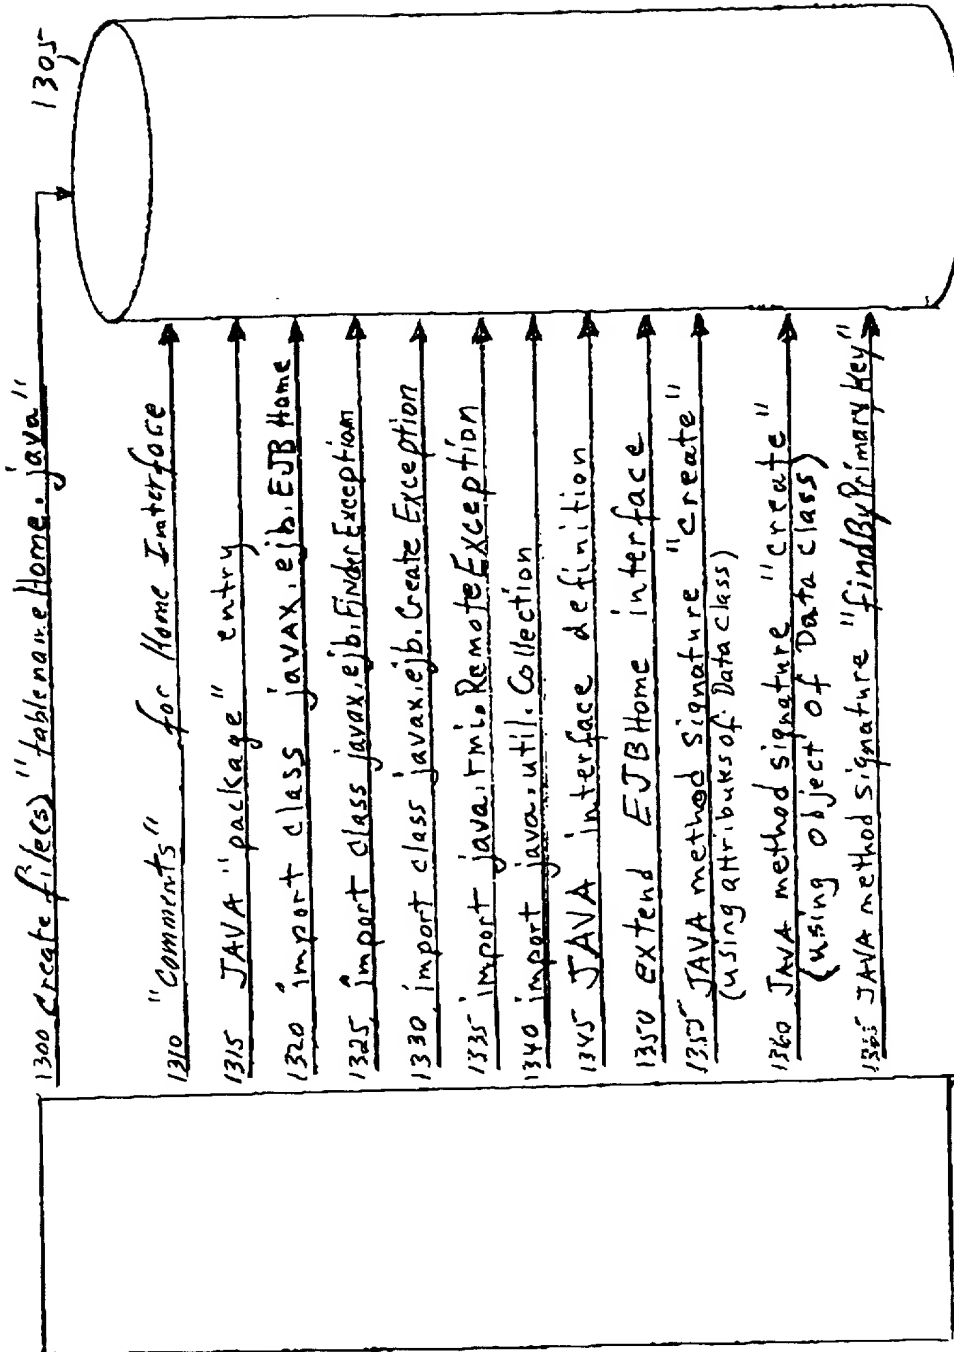 1305
1300 Create file(s) "tablename Home.java"
1310 "Comments" for Home Interface
1315 JAVA "package" entry
1320 import class javax.ejb.EJB Home
1325 import class javax.ejb.FinderException
1330 import class javax.ejb.Create Exception
1335 import java.rmi.RemoteException
1340 import java.util.Collection
1345 JAVA interface definition
1350 extend EJBHome interface
1355 JAVA method signature "create"
(using attributes of Data class)
1360 JAVA method signature "create"
(using object of Data class)
1365 JAVA method signature "findByPrimaryKey"